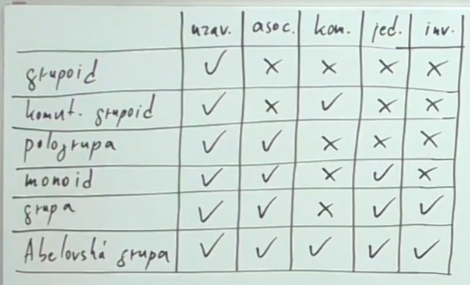 uzav. asoc. kom. jed. inv.
grupoid ✓ × × × ×
komut. grupoid ✓ × ✓ × ×
pologrupa ✓ ✓ × × ×
monoid ✓ ✓ × ✓ ×
grupa ✓ ✓ × ✓ ✓
Abelovská grupa ✓ ✓ ✓ ✓ ✓